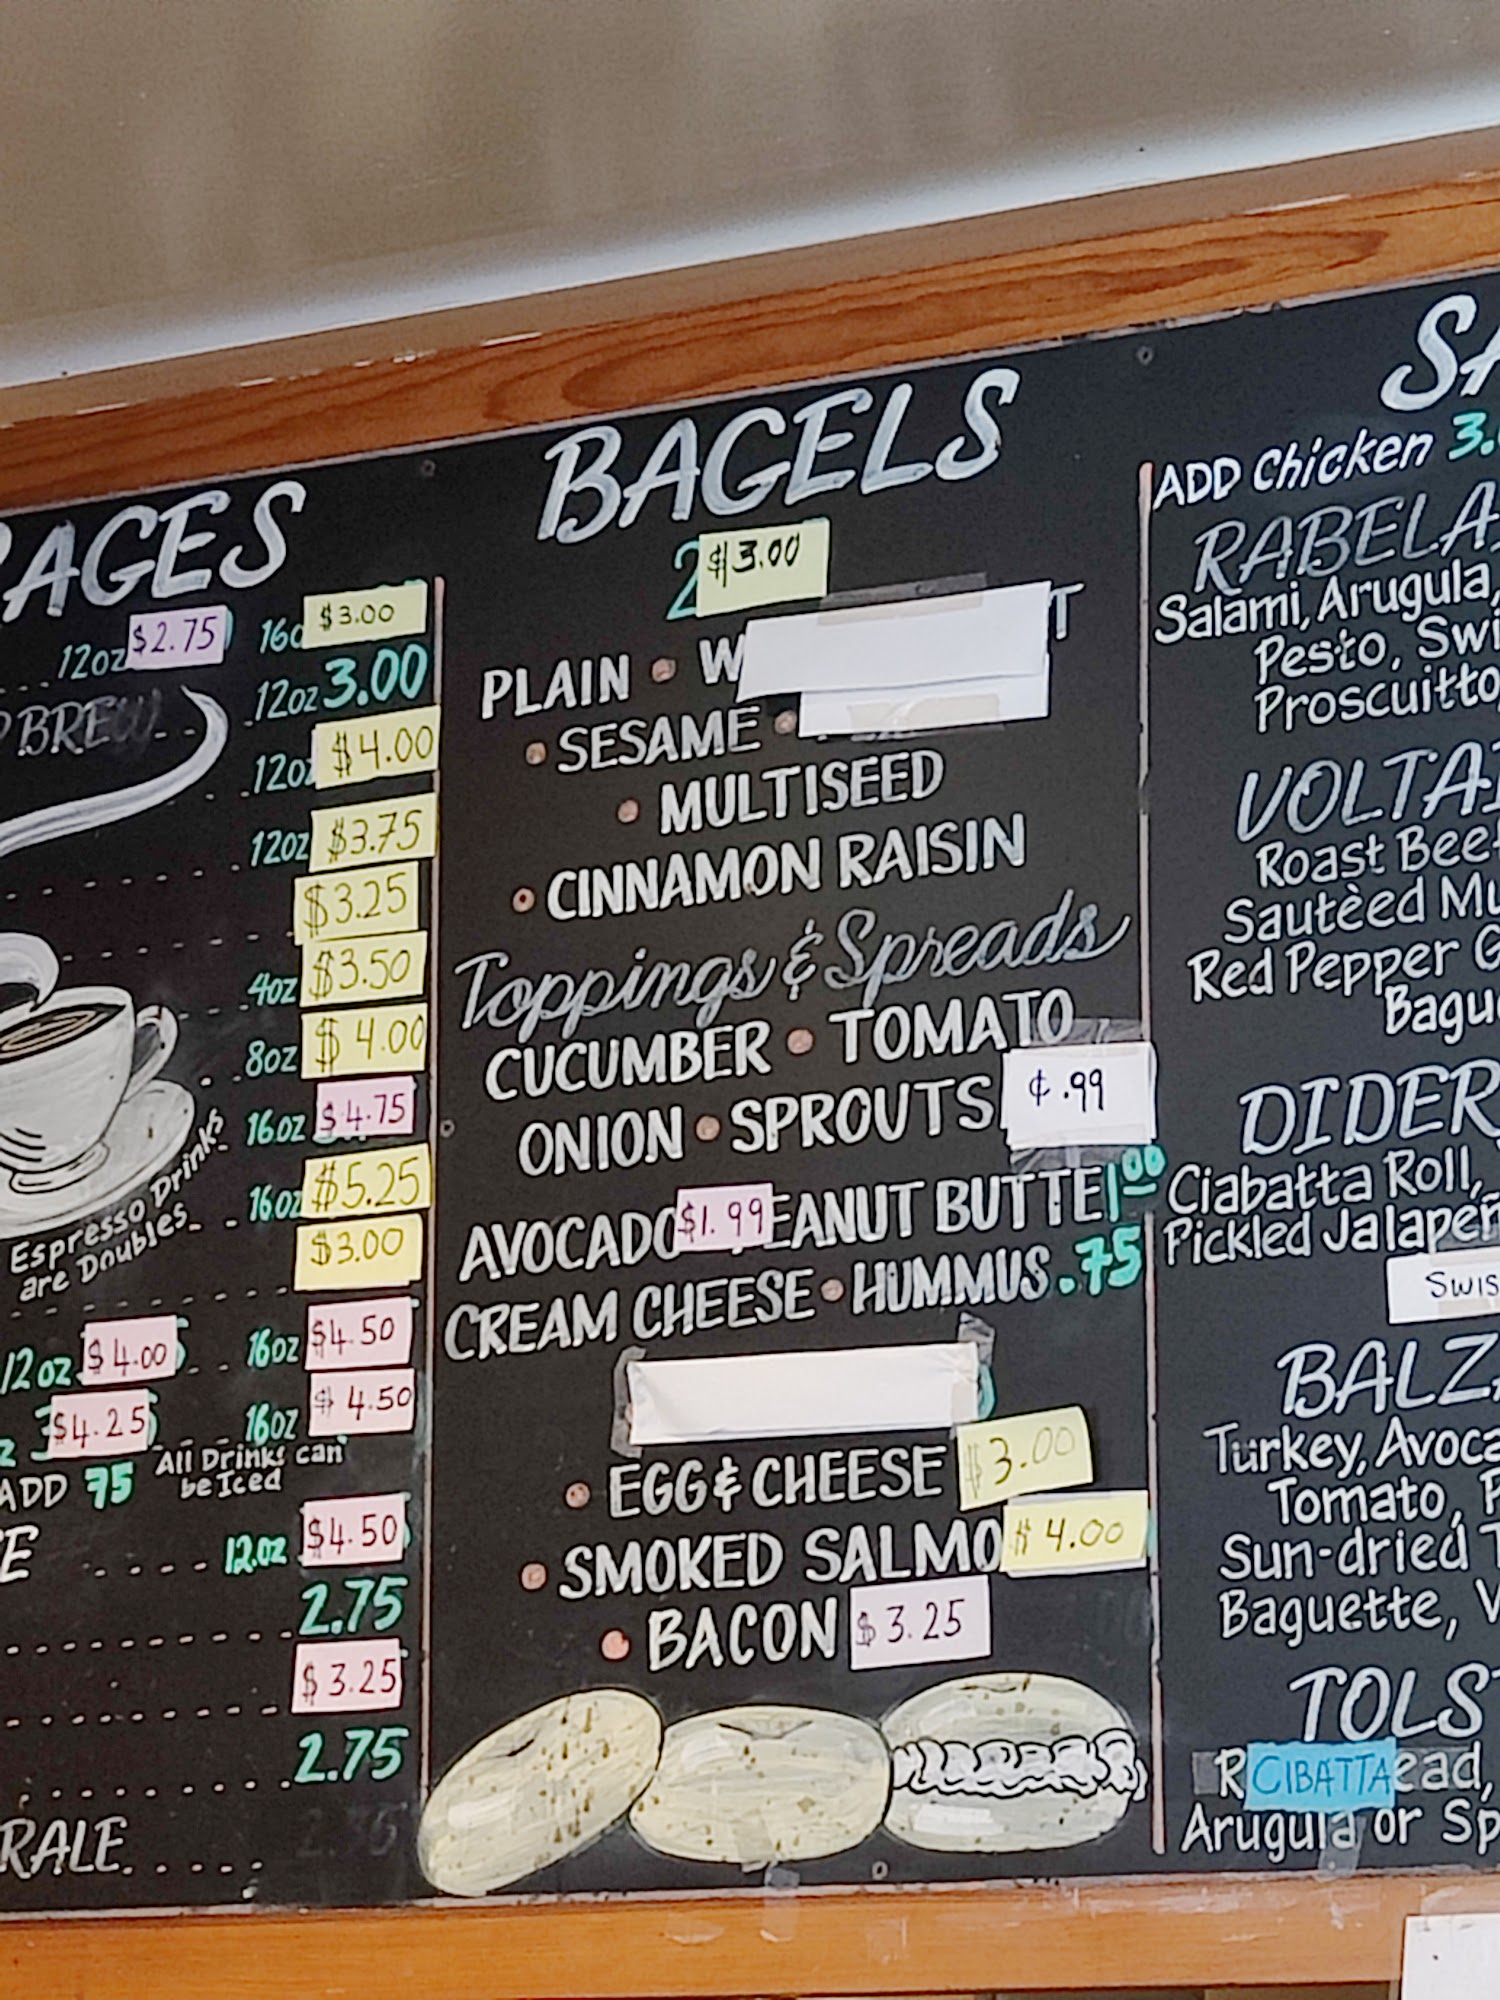 AGES
12oz $2.75 16o $3.00
BREW 12oz 3.00
12oz $4.00
12oz $3.75
$3.25
4oz $3.50
8oz $4.00
16oz $4.75
16oz $5.25
Espresso Drinks
are Doubles
$3.00
12oz $4.00 16oz $4.50
$4.25 16oz $4.50
ADD 75 All Drinks can
be Iced
12oz $4.50
2.75
$3.25
2.75
RALE
BAGELS
2 $3.00
PLAIN • W T
• SESAME •
• MULTISEED
• CINNAMON RAISIN
Toppings & Spreads
CUCUMBER • TOMATO
ONION • SPROUTS ¢.99
AVOCADO $1.99 EANUT BUTTE 100
CREAM CHEESE • HUMMUS .75
• EGG & CHEESE $3.00
• SMOKED SALMO $4.00
• BACON $3.25
SA
ADD Chicken 3.
RABELA
Salami, Arugula,
Pesto, Swi
Proscuitto
VOLTAI
Roast Beef
Sautèed Mu
Red Pepper
Bagu
DIDER
Ciabatta Roll,
Pickled Jalapeñ
SWIS
BALZ
Turkey, Avoca
Tomato,
Sun-dried T
Baguette, V
TOLST
R CIBATTA ead,
Arugula or Sp